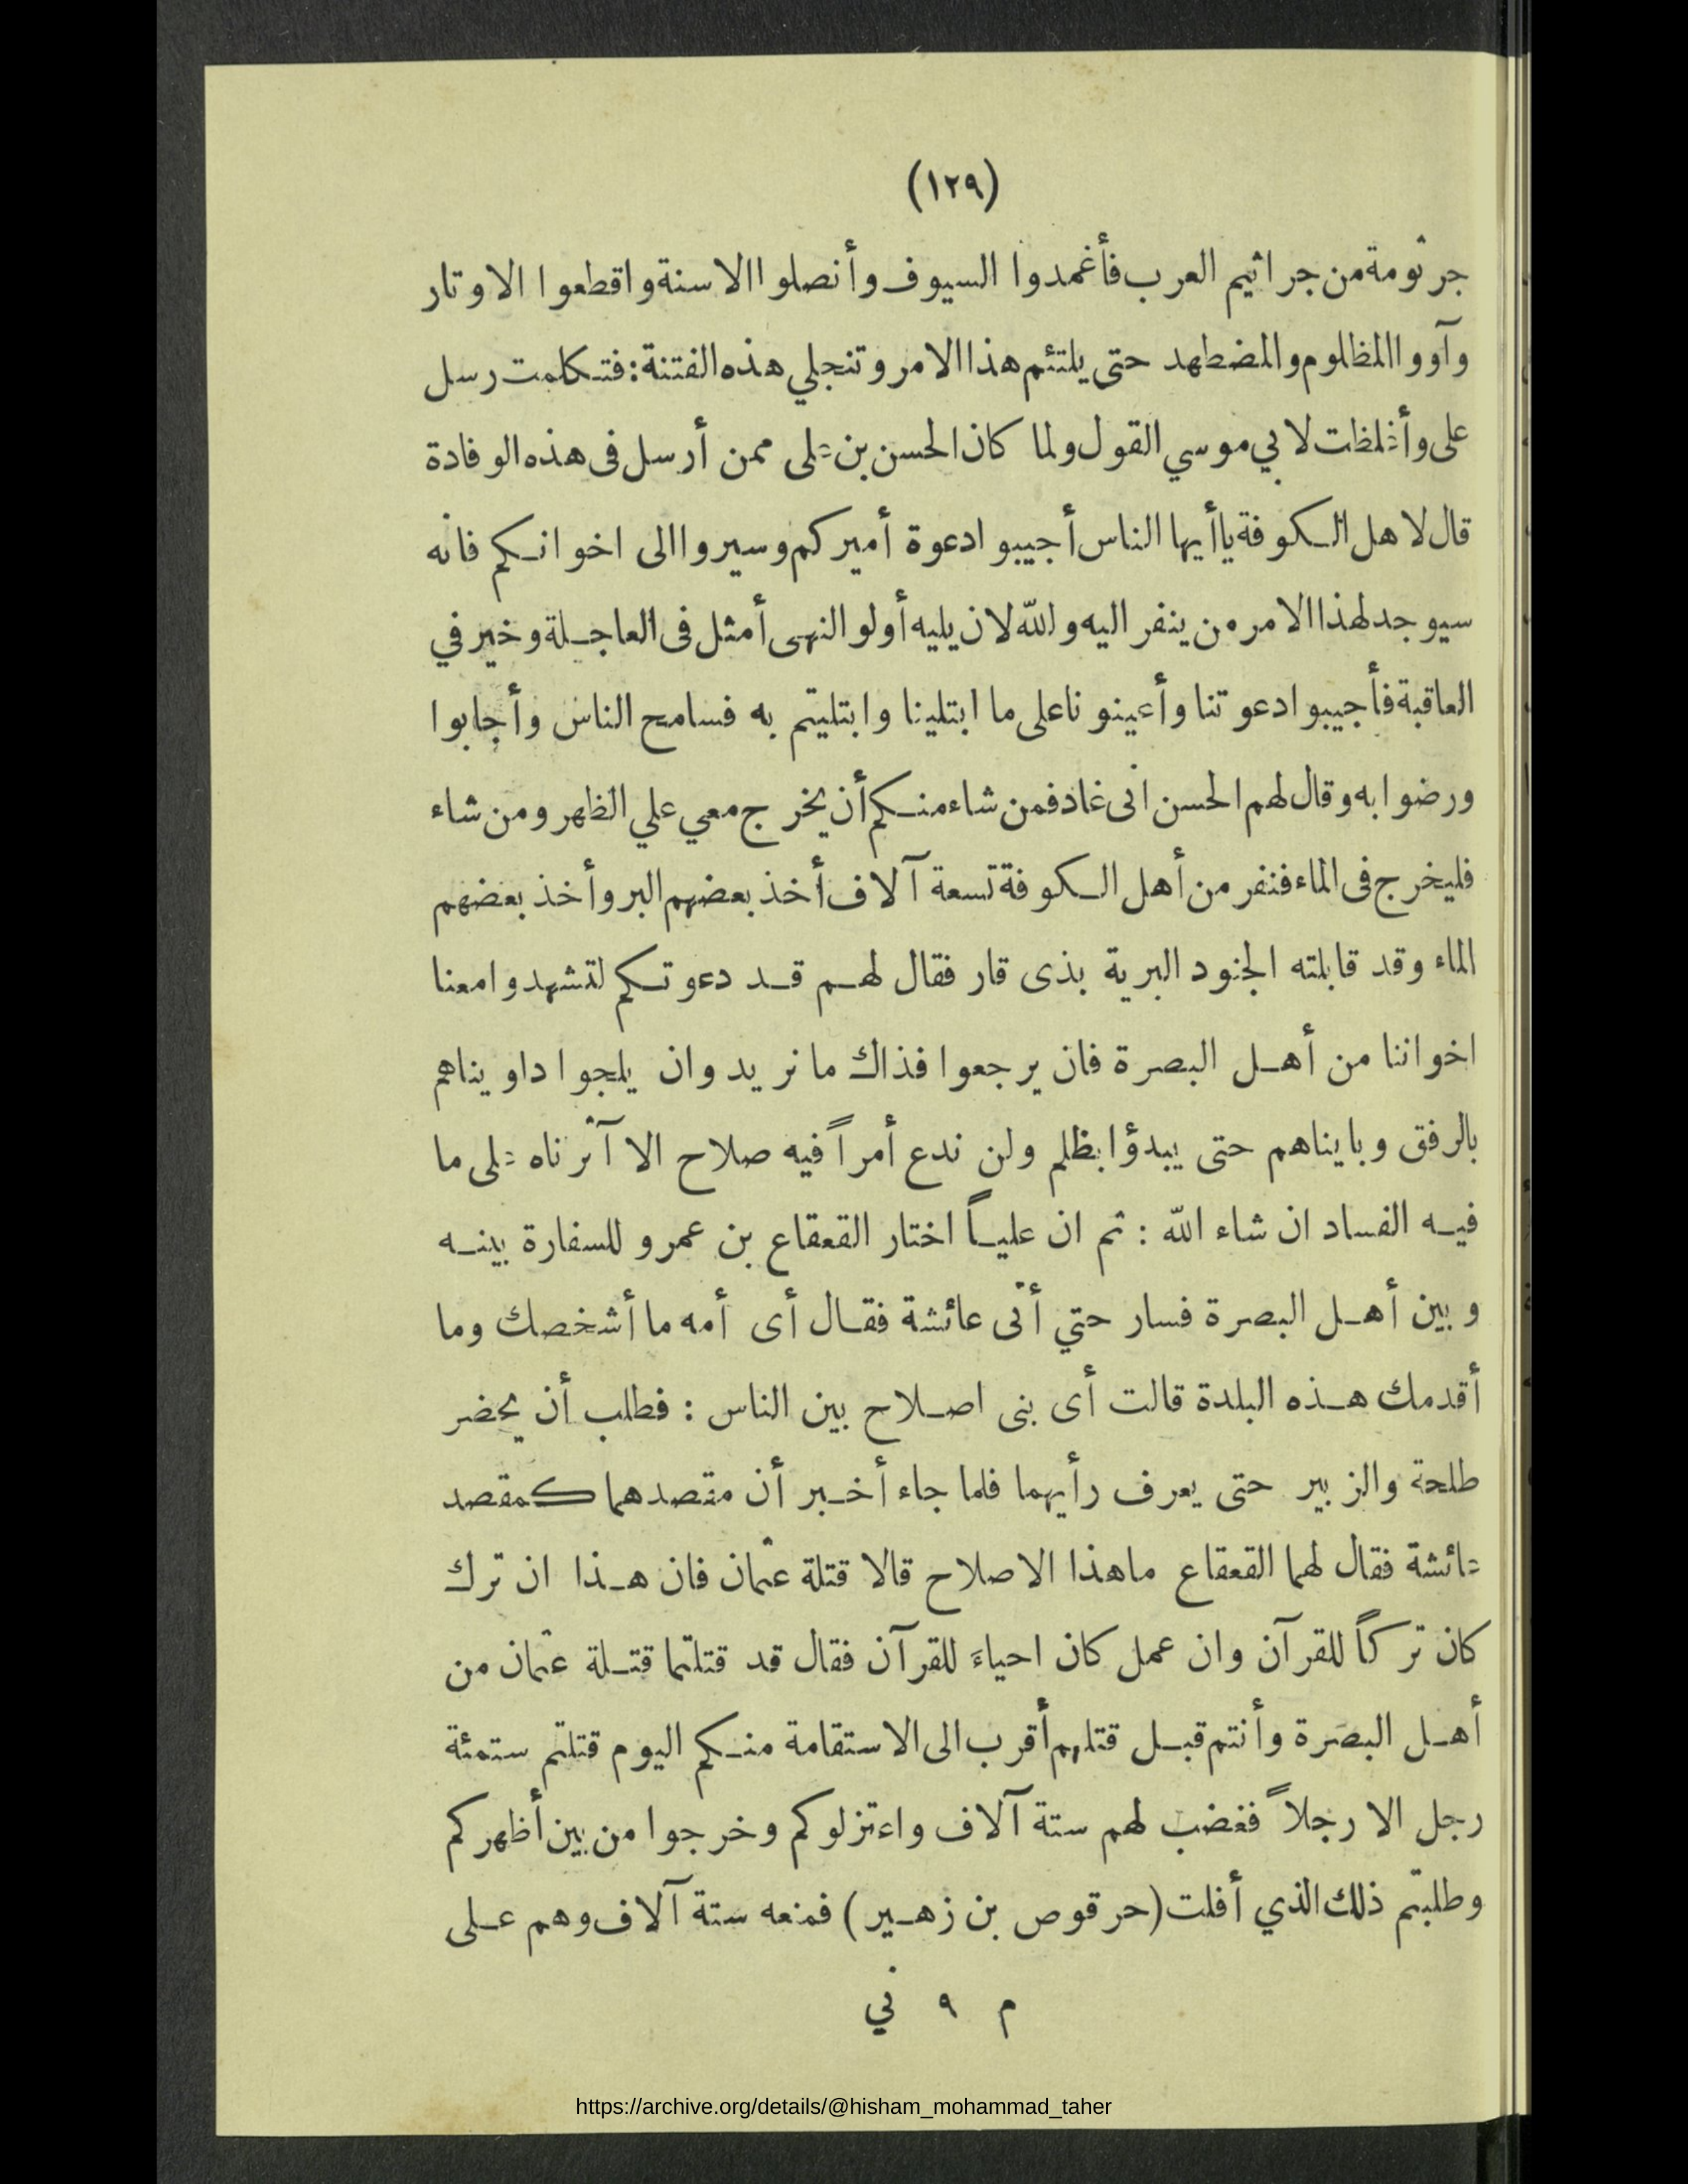 (١٢٩)
جرثومة من جراثيم العرب فأغمدوا السيوف وأنصلوا الاسنة واقطعوا الاوتار
وآووا المظلوم والمضطهد حتى يلتئم هذا الامر وتنجلي هذه الفتنة: فتكلمت رسل
على وأغلظت لابي موسي القول ولما كان الحسن بن على ممن أرسل فى هذه الوفادة
قال لاهل الكوفة ياأيها الناس أجيبوا دعوة أميركم وسيروا الى اخوانكم فانه
سيوجد لهذا الامر من ينفر اليه والله لان يليه أولو النهى أمثل فى العاجلة وخير في
العاقبة فأجيبوا دعوتنا وأعينونا على ما ابتلينا وابتليتم به فسامح الناس وأجابوا
ورضوا به وقال لهم الحسن انى غاد فمن شاء منكم أن يخرج معي علي الظهر ومن شاء
فليخرج فى الماء فنفر من أهل الكوفة تسعة آلاف أخذ بعضهم البر وأخذ بعضهم
الماء وقد قابلته الجنود البرية بذى قار فقال لهم قد دعوتكم لتشهدوا معنا
اخواننا من أهل البصرة فان يرجعوا فذاك ما نريد وان يلجوا داويناهم
بالرفق وبايناهم حتى يبدؤا بظلم ولن ندع أمراً فيه صلاح الا آثرناه على ما
فيه الفساد ان شاء الله : ثم ان علياً اختار القعقاع بن عمرو للسفارة بينه
وبين أهل البصرة فسار حتي أتى عائشة فقال أى أمه ما أشخصك وما
أقدمك هذه البلدة قالت أى بنى اصلاح بين الناس : فطلب أن يحضر
طلحة والزبير حتى يعرف رأيهما فلما جاء أخبر أن مقصدهما كمقصد
عائشة فقال لهما القعقاع ماهذا الاصلاح قالا قتلة عثمان فان هذا ان ترك
كان تركاً للقرآن وان عمل كان احياءً للقرآن فقال قد قتلتما قتلة عثمان من
أهل البصرة وأنتم قبل قتلهم أقرب الى الاستقامة منكم اليوم قتلتم ستمئة
رجل الا رجلاً فغضب لهم ستة آلاف واعتزلوكم وخرجوا من بين أظهركم
وطلبتم ذلك الذي أفلت (حرقوص بن زهير) فمنعه ستة آلاف وهم على
م ٩ ني
https://archive.org/details/@hisham_mohammad_taher